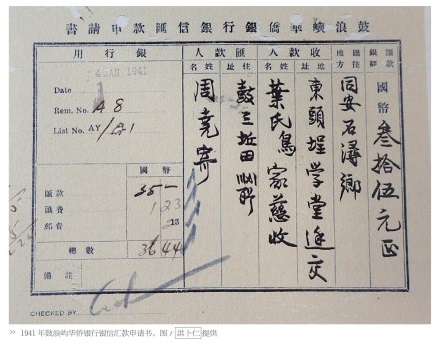 鼓浪嶼華僑銀行銀信匯款申請書
匯款銀額 國幣叁拾伍元正
匯往地方 同安石潯鄉
收款人 住址 東頭埕学堂边交
姓名 葉氏鳥家慈收
匯款人 住址
姓名 周堯寄
銀行用
Date JAN 1941
Rem. No. A8
List No. AY/
國幣
匯款 35-
匯費 1 23
郵費 13
總數 36 44
備註
CHECKED BY
1941 年鼓浪屿华侨银行银信汇款申请书。图 / 洪卜仁 提供